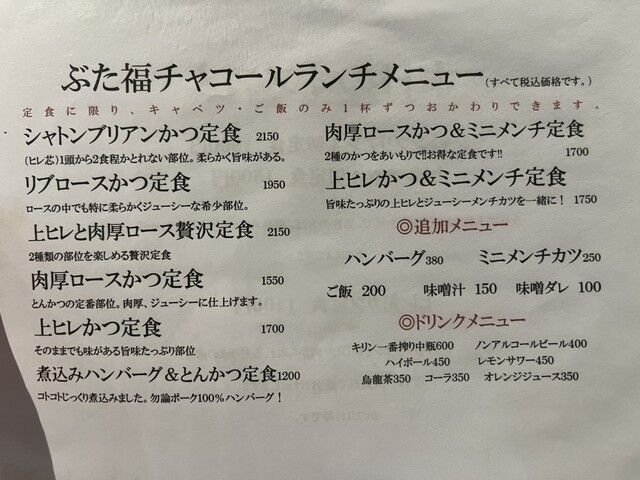 ぶた福チャコールランチメニュー(すべて税込価格です。)
定食に限り、キャベツ・ご飯のみ1杯ずつおかわりできます。
シャトンブリアンかつ定食 2150
(ヒレ芯)1頭から2食程かとれない部位。柔らかく旨味がある。
リブロースかつ定食 1950
ロースの中でも特に柔らかくジューシーな希少部位。
上ヒレと肉厚ロース贅沢定食 2150
2種類の部位を楽しめる贅沢定食
肉厚ロースかつ定食 1550
とんかつの定番部位。肉厚、ジューシーに仕上げます。
上ヒレかつ定食 1700
そのままでも味がある旨味たっぷり部位
煮込みハンバーグ&とんかつ定食1200
コトコトじっくり煮込みました。勿論ポーク100%ハンバーグ!
肉厚ロースかつ&ミニメンチ定食
2種のかつをあいもりで!!お得な定食です!! 1700
上ヒレかつ&ミニメンチ定食
旨味たっぷりの上ヒレとジューシーメンチカツを一緒に! 1750
◎追加メニュー
ハンバーグ380 ミニメンチカツ250
ご飯 200 味噌汁 150 味噌ダレ 100
◎ドリンクメニュー
キリン一番搾り中瓶600 ノンアルコールビール400
ハイボール450 レモンサワー450
烏龍茶350 コーラ350 オレンジジュース350